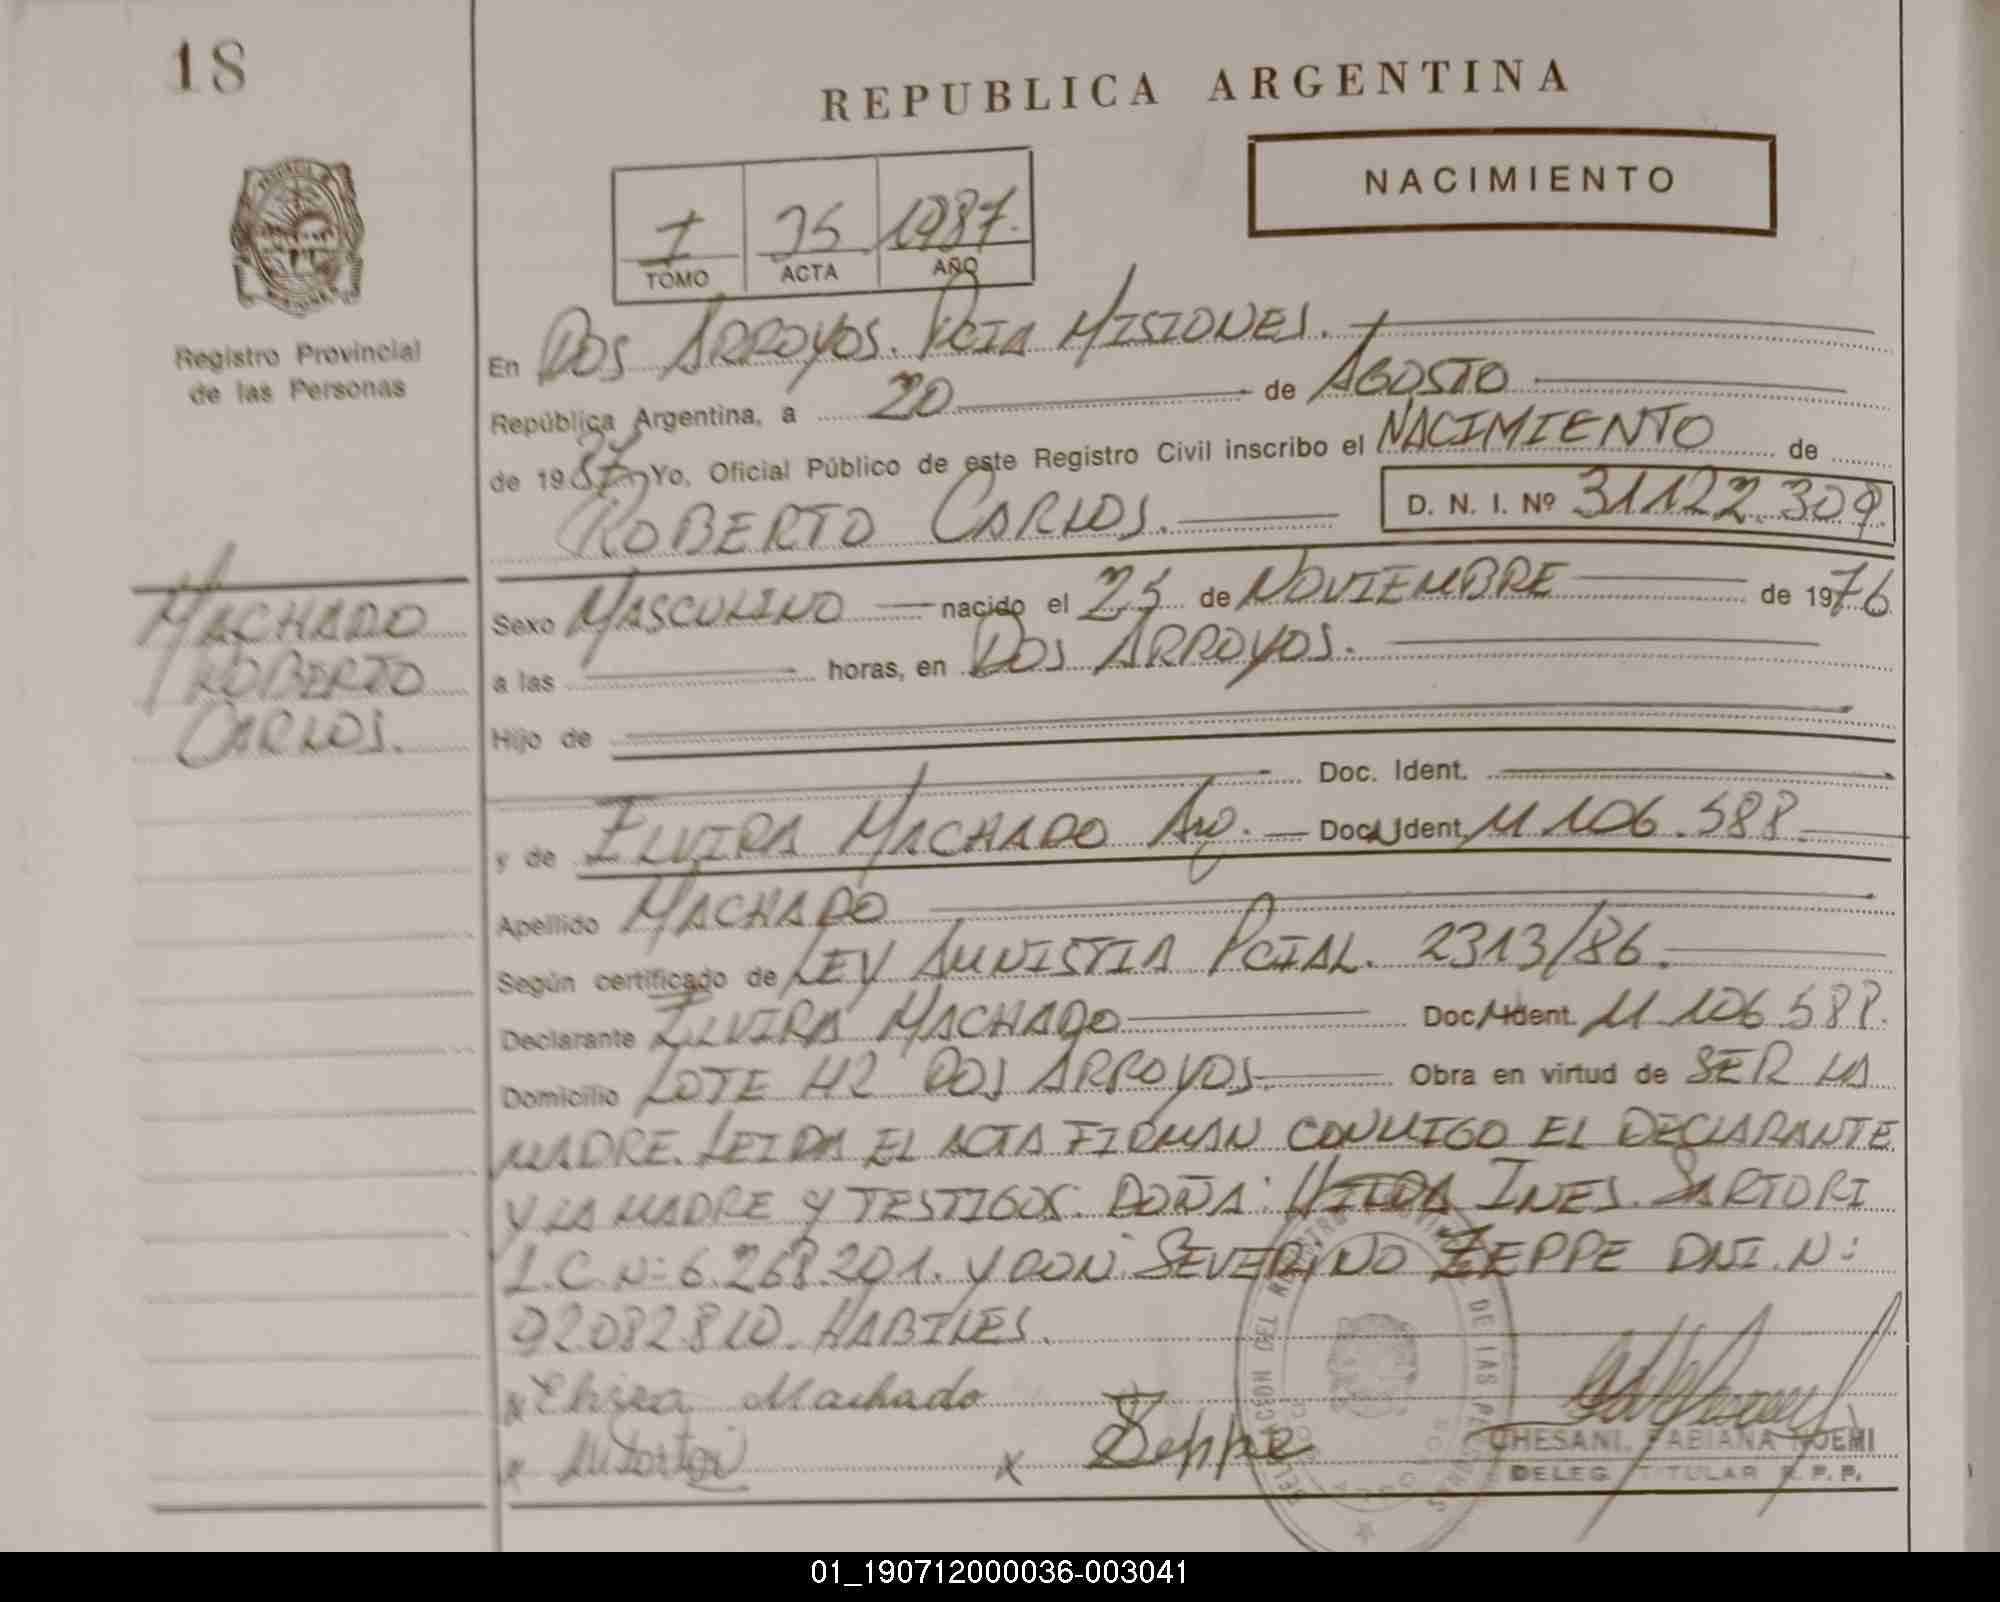 18
REPUBLICA ARGENTINA
NACIMIENTO
1 75 1987.
TOMO ACTA AÑO
Registro Provincial
de las Personas
En DOS ARROYOS. PCIA MISIONES.
República Argentina, a 20 de AGOSTO
de 1987 Yo, Oficial Público de este Registro Civil inscribo el NACIMIENTO de
ROBERTO CARLOS. D. N. I. Nº 31122.309
MACHADO
ROBERTO
CARLOS.
Sexo MASCULINO nacido el 25 de NOVIEMBRE de 1976
a las horas, en DOS ARROYOS.
Hijo de
Doc. Ident.
y de ELVIRA MACHADO Arg. Doc. Ident. 11.106.588
Apellido MACHADO
Según certificado de LEY AMNISTIA PCIAL. 2313/86.
Declarante ELVIRA MACHADO Doc. Ident. 11.106.588.
Domicilio LOTE 42 DOS ARROYOS. Obra en virtud de SER LA
MADRE. LEIDA EL ACTA FIRMAN CONMIGO EL DECLARANTE
Y LA MADRE Y TESTIGOS: DOÑA: HILDA INES. SARTORI
L.C. N: 6.268.201. Y DON: SEVERINO ZEPPE DNI. N:
02.082.810. HABILES.
x Elvira Machado
x x Zeppe
CHESANI, FABIANA NOEMI
DELEG. TITULAR R. P. P.
01_190712000036-003041